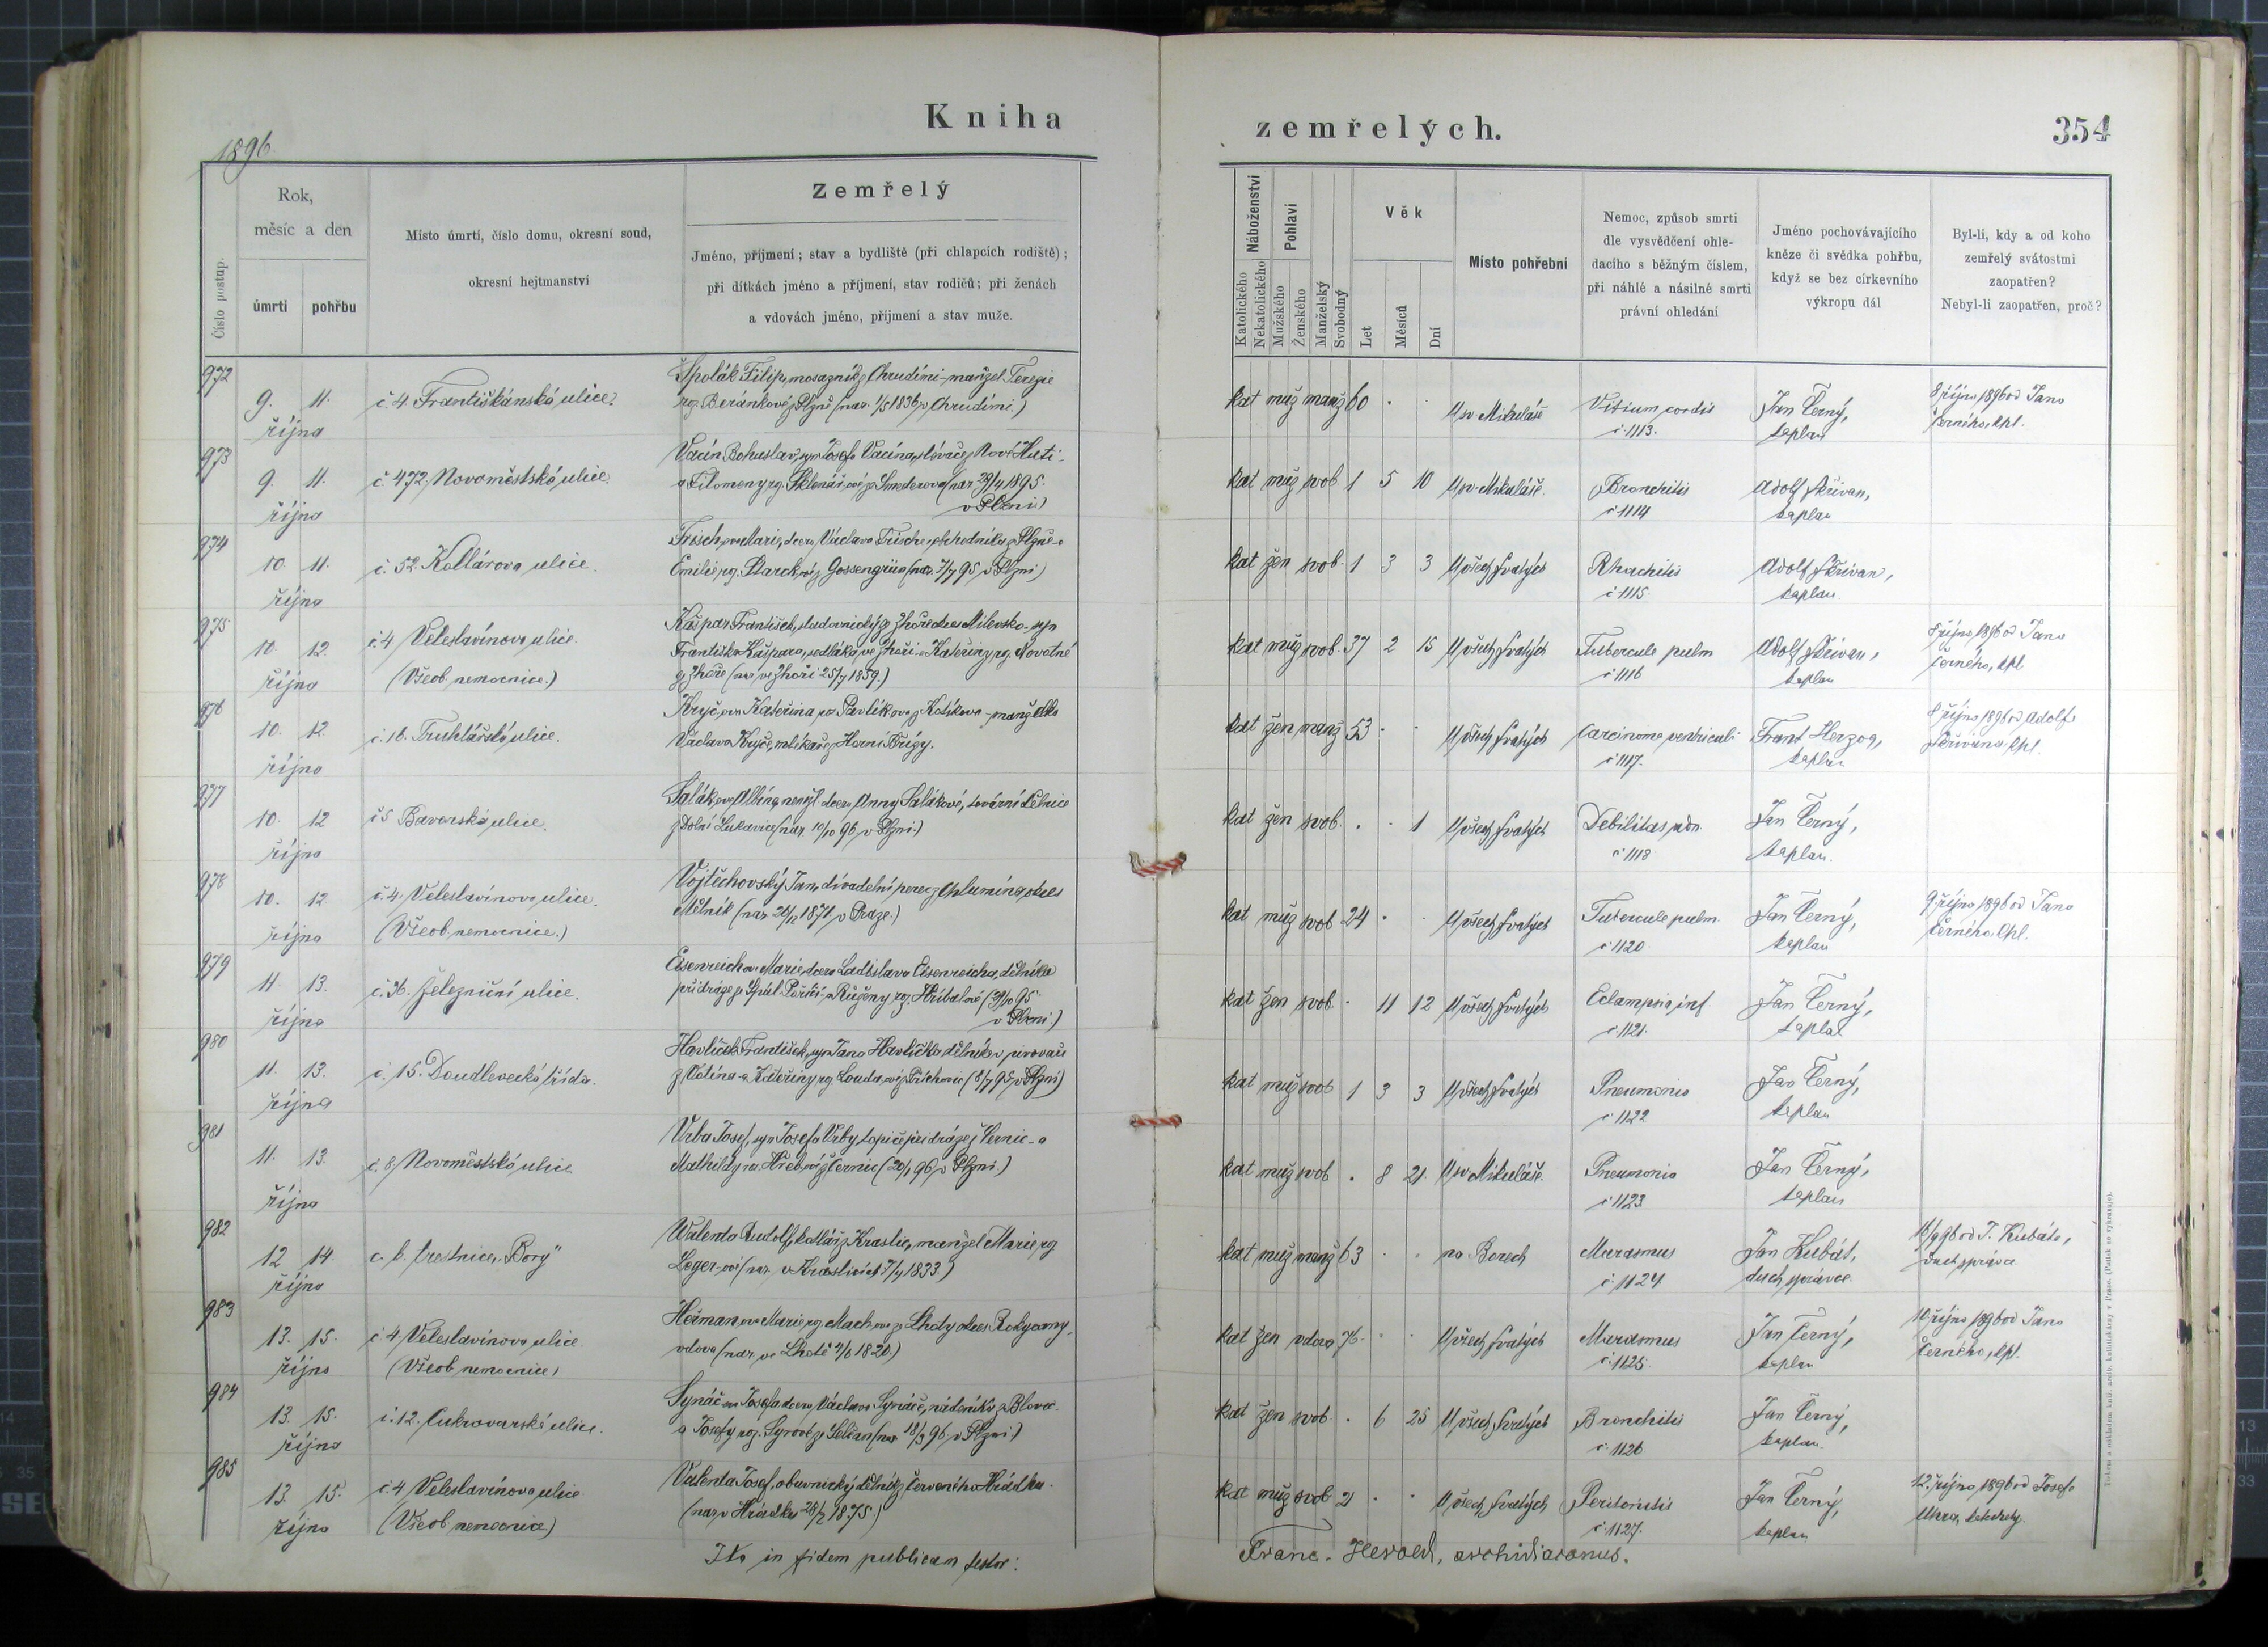 Kniha
zemřelých.
354
1896
Číslo postup.
Rok,
měsíc a den
úmrtí
pohřbu
Místo úmrtí, číslo domu, okresní soud,
okresní hejtmanství
Zemřelý
Jméno, příjmení; stav a bydliště (při chlapcích rodiště);
při dítkách jméno a příjmení, stav rodičů; při ženách
a vdovách jméno, příjmení a stav muže.
Náboženství
Katolického
Nekatolického
Pohlaví
Mužského
Ženského
Manželský
Svobodný
Věk
Let
Měsíců
Dní
Místo pohřební
Nemoc, způsob smrti
dle vysvědčení ohle-
dacího s běžným číslem,
při náhlé a násilné smrti
právní ohledání
Jméno pochovávajícího
kněze či svědka pohřbu,
když se bez církevního
výkropu dál
Byl-li, kdy a od koho
zemřelý svátostmi
zaopatřen?
Nebyl-li zaopatřen, proč?
972
9. 11.
října
č. 4 Františkánská ulice.
Špolák Filip, mosazník z Chrudimi - manžel Terezie
roz. Beránkové z Plzně (nar. 1/5 1836 v Chrudimi.)
kat muž manž 60 U sv Mikuláše
Vitium cordis
č. 1113.
Jan Černý,
kaplan
8 října 1896 od Jana
Černého, kpl.
973
9. 11.
října
č. 472 Novoměstská ulice.
Vacín Bohuslav, syn Josefa Vacína, slévače z Nové Huti -
a Filomeny rz. Sklenářové ze Smederova (nar 29/4 1895.
v Plzni)
kat muž svob 1 5 10 U sv. Mikuláše.
Bronchitis
č 1114
Adolf Skřivan,
kaplan
974
10. 11.
října
č. 52. Kollárova ulice.
Frisch,ova Marie, dcera Václava Frische, obchodníka z Plzně - a
Emilie rz. Starck,ové z Gossengrün (nar. 7/7 95 v Plzni)
kat žen svob. 1 3 3 U všech svatých
Rhachitis
č 1115.
Adolf Skřivan,
kaplan.
975
10. 12.
října
č. 4 Veleslavínova ulice.
(Všeob. nemocnice.)
Kašpar František, sladovnický ze Zhoře okres Milevsko - syn
Františka Kašpara, sedláka ve Zhoři - a Kateřiny rz. Novotné
z Zhoře (nar ve Zhoři 25/7 1859.)
kat muž svob. 37 2 15 U všech svatých
Tubercule pulm
č 1116
Adolf Skřivan,
kaplan
8 října 1896 od Jana
Černého, kpl
976
10. 12.
října
č. 16. Truhlářská ulice.
Kryč,ova Kateřina, roz Pavlíkova z Kotíkova - manželka
Václava Kryče, mlékaře z Horní Břízy.
kat žen manž 53 U všech svatých
Carcinoma ventriculi
č 1117.
Frant Herzog,
kaplan
8 října 1896 od Adolfa
Skřivana, kpl.
977
10. 12
října
č 5 Bavorská ulice.
Salák,ova Albína, nemjl dcera Anny Salákové, tovární dělnice
z Dolní Lukavice (nar. 10/10 96 v Plzni)
kat žen svob. 1 U všech svatých
Debilitas
č 1118
Jan Černý,
kaplan.
978
10. 12
října
č. 4. Veleslavínova ulice.
(Všeob. nemocnice.)
Vojtěchovský Jan, divadelní herec z Chlumína okres
Mělník (nar 26/12 1871 v Praze.)
kat muž svob 24 U všech svatých
Tubercule pulm.
č 1120
Jan Černý,
kaplan
9 října 1896 od Jana
Černého, kpl.
979
11. 13.
října
č. 36. Železniční ulice.
Eisenreich,ova Marie, dcera Ladislava Eisenreicha, dělníka
při dráze ze Spál. Poříčí - a Růženy rz. Hříbalové (29/10 95.
v Plzni)
kat žen svob. 11 12 U všech svatých
Eclampsia inf
č 1121.
Jan Černý,
kaplan
980
11. 13.
října
č. 15. Doudlevecká třída.
Havlíček František, syn Jana Havlíčka dělníka v pivovaře
z Votína - a Kateřiny rz. Louda,ové z Přichovic (8/7 95 v Plzni)
kat muž svob 1 3 3 U všech svatých
Pneumonia
č 1122
Jan Černý,
kaplan
981
11. 13.
října
č. 8. Novoměstská ulice
Vrba Josef, syn Josefa Vrby topiče při dráze z Černic - a
Mathildy rz. Hřeb,ové z Černic (20/1 96 v Plzni.)
kat muž svob. 8 21. U sv Mikuláše.
Pneumonia
č 1123
Jan Černý,
kaplan
982
12 14
října
c. k. trestnice „Bory"
Walenta Rudolf, kotlář z Kraslic, manžel Marie rz
Leger-ové (nar. v Kraslicích 7/4 1833)
kat muž manž 63 na Borech
Marasmus
č. 1124
Jan Kubát,
duch. správce.
od J. Kubáta,
duch. správce
983
13. 15.
října
č 4 Veleslavínova ulice
(Všeob. nemocnice)
Heřman,ova Marie rz. Mach,ova ze Lhoty okres Rokycany,
vdova (nar. ve Lhotě 1820)
kat žen vdova 76. U všech svatých
Marasmus
č. 1125.
Jan Černý,
kaplan
10 října 1896 od Jana
Černého, kpl.
984
13. 15.
října
č. 12. Cukrovarská ulice.
Synáč,ova Josefa dcera Václava Synáče, nádeníka z Blovic -
a Josefy roz. Syrové ze Sečan (nar 18/3 96 v Plzni)
kat žen svob. 6 25 U všech svatých
Bronchitis
č. 1126
Jan Černý,
kaplan.
985
13. 15.
října
č. 4 Veleslavínova ulice.
(Všeob. nemocnice)
Valenta Josef, obuvnický dělník z Červeného Hrádku.
(nar v Hrádku 28/2 1875.)
kat muž svob 21 U všech svatých
Peritonitis
č 1127.
Jan Černý,
kaplan
12. října 1896 od Josefa
katechety.
Ita in fidem publicam testor:
Franc. Herold, archidiaconus.
Tiskem a nákladem kníž. arcib. knihtiskárny v Praze. (Patisk se vyhrazuje).